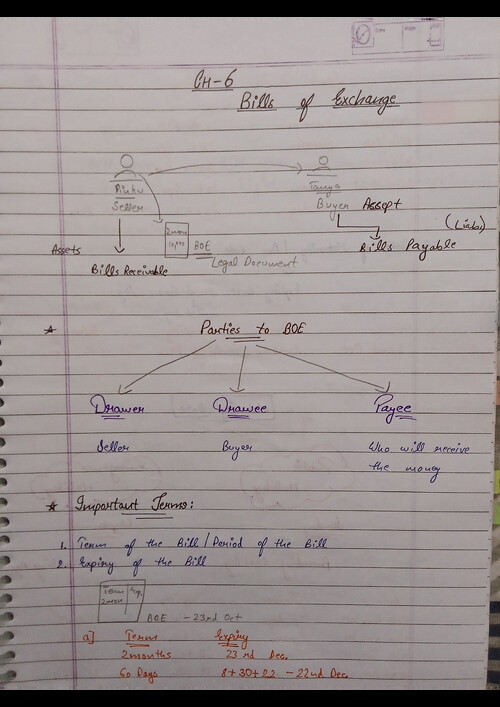 CH-6
Bills of Exchange
Rinku
Tanya
Seller
Buyer Assept
2 mon
10,000
BOE
Legal Document
(Liabi)
Assets
Bills Receivable
Bills Payable
Parties to BOE
Drawer Drawee Payee
Seller Buyer Who will receive
the money
Important Terms:
1. Term of the Bill / Period of the Bill
2. Expiry of the Bill
Term Exp.
2 mon
BOE - 23rd Oct
a] Term Expiry
2 months 23 rd Dec.
60 Days 8+30+22 - 22nd Dec.